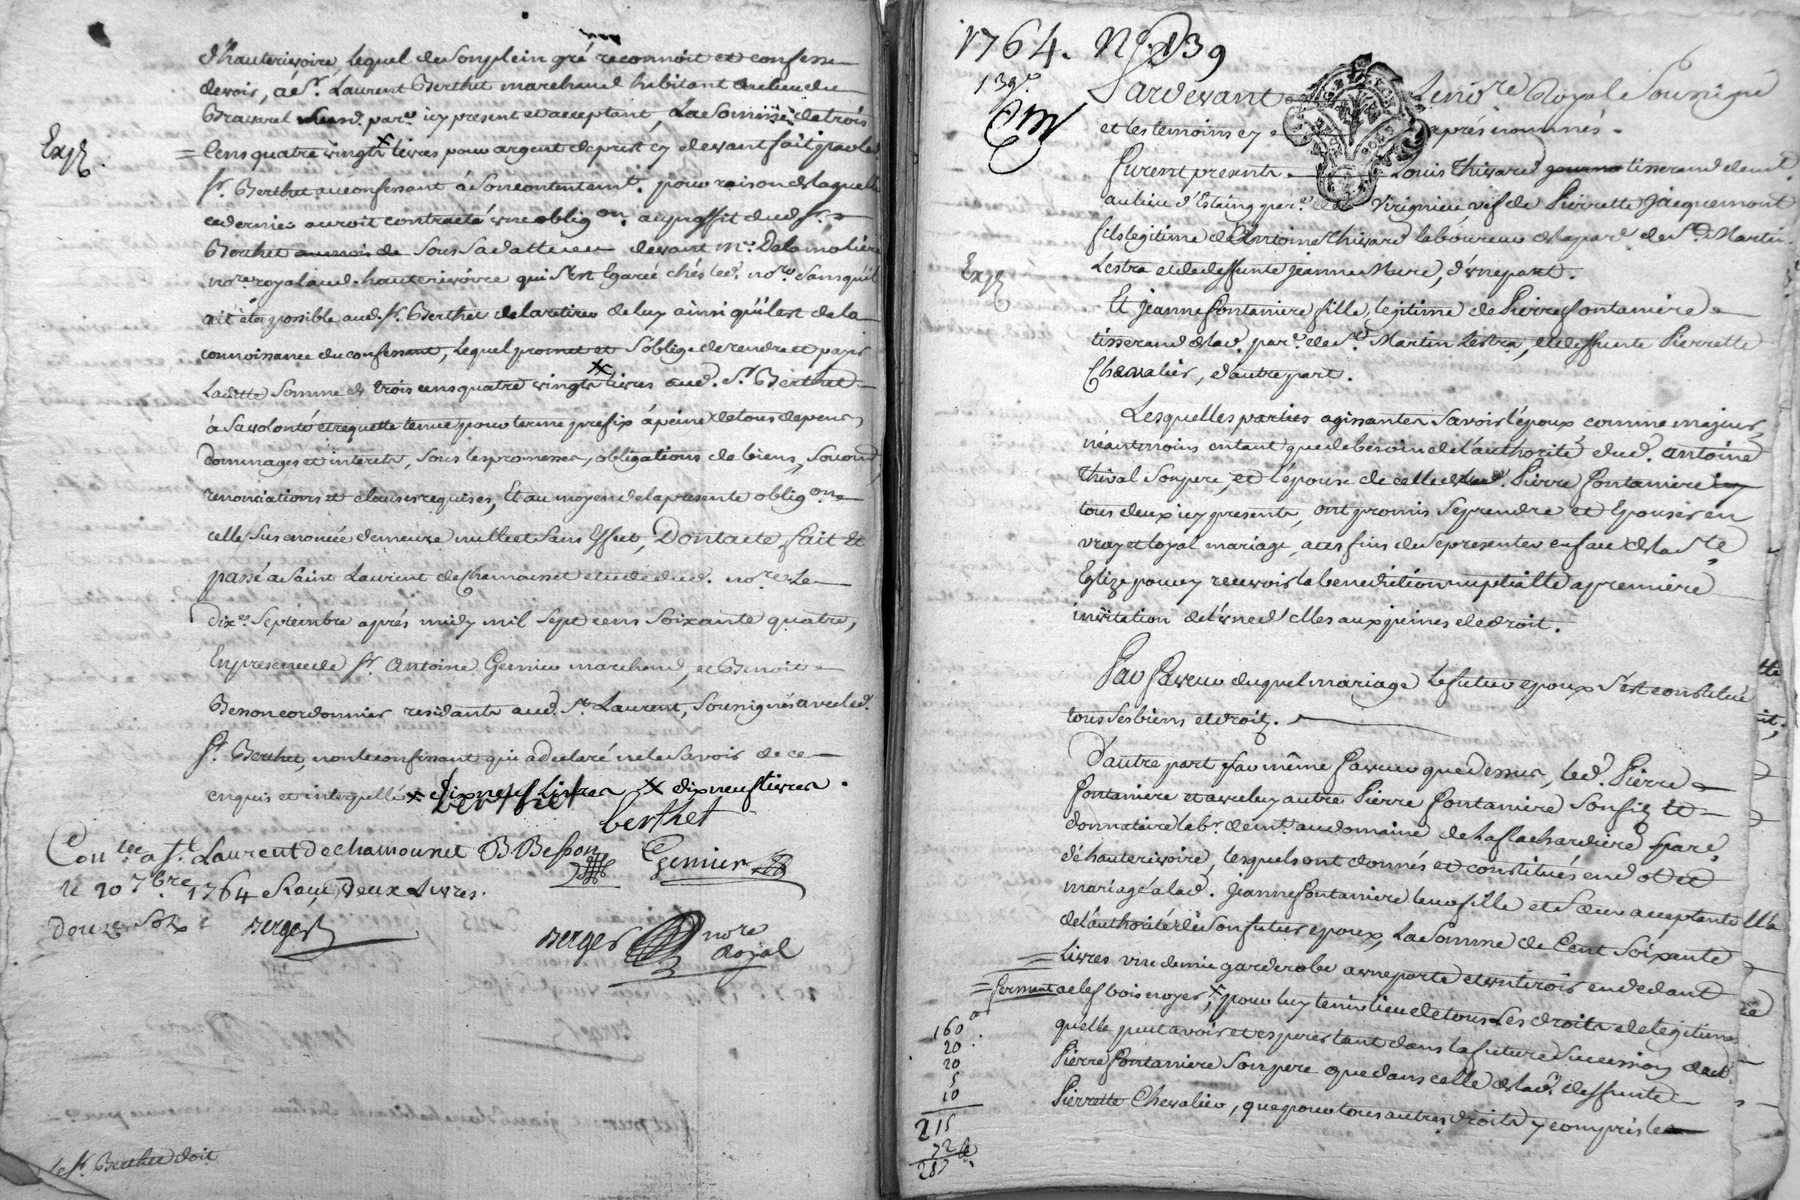 d'hauterivoire lequel de son plein gré reconnoit et confesse
devoir, à Sr. Laurent Berthet marchand habitant au lieu de
Bravarel susd. parse. icy present et acceptant, La Somme de trois
Expé.
Cens quatre vingts x livres pour argent de pret cy devant fait par led.
Sr. Berthet au confessant à son contentemt. pour raison de laquelle
ce dernier auroit contracté une oblig.on au proffit dud. Sr.
Berthet sous sa datte devant Me. Delamoliere
nore. royal aud. hauterivoire qui s'est Egarée chés led. nore. sans qu'il
ait été possible aud. Sr. Berthet de la retirer de luy ainsi qu'il est de la
connoissance du confessant, lequel promet et s'oblige de rendre et payer
Laditte Somme de trois cens quatre vingts x livres aud. Sr. Berthet
à sa volonté et requette tenue pour terme prefix à peine de tous depens,
dommages et interets, sous les promesses, obligations de biens,
renonciations et clauses requises, Et au moyen de la presente oblig.on
celle sus enoncée demeure nulle et sans effet, Dont acte, fait et
passé a Saint Laurent de Chamousset etude dud. nore. Le
dixe. Septembre aprés midy mil sept cens soixante quatre,
En presence de Sr. Antoine Gernier marchand, et Benoit
Besson cordonnier residants aud. St. Laurent, soussignés avec led.
Sr. Berthet, non le confessant qui a declaré ne le savoir de ce
enquis et interpellé x dix neuf livres x dix neuf livres.
berthet
berthet
Conllee a St. Laurent de chamousset B Besson Gernier
le 20 7bre 1764 Reçu deux Livres
douze Sols Berger
Berger nore Royal
le Sr. Berthet doit
1764. No. 139
139e.
Pardevant Le nore. Royal Soussigné
et les temoins cy aprés nommés.
Furent presents Louis thivard tisserand demt.
au lieu d'Esteing parse. de Virignieu vef de Pierrette Jacquemont
fils legitime de Antoine thivard laboureur de la parse. de St. Martin
Expé.
Lestra et de deffunte jeanne Mure, d'une part.
Et jeanne fontaniere fille legitime de Pierre fontaniere
tisserand de lad. parse. de St. Martin Lestra, et de deffunte Pierrette
Chevalier, d'autre part.
Lesquelles parties agissantes savoir l'époux comme majeur,
néantmoins entant que de besoin de l'authorité dud. antoine
thival son pere, et l'épouse de celle dud. Pierre fontaniere
tous deux icy presents, ont promis se prendre et Epouser en
vray et loyal mariage, a ces fins de se presenter en face de la Ste.
Eglize pour y recevoir la benediction nuptialle a premiere
invitation de l'une d'elles aux peines de droit.
En Faveur duquel mariage le futur epoux s'est constitué
tous ses biens et droits.
D'autre part en même Faveur que dessus, led. Pierre
fontaniere et avec luy autre Pierre fontaniere son fils et
donnataire labr. demt. au domaine de la flachardiere parse.
d'hauterivoire, lesquels ont donnés et constitués en dot et
mariage a lad. jeanne fontaniere leur fille et soeur acceptante de
l'authorité de son futur epoux, La Somme de Cent Soixante
Livres une demie garderobe a une porte et un tiroir en dedant
fermant a clef bois noyer, x pour luy tenir lieu de tous les droits de legitimes
qu'elle peut avoir et esperer tant dans la future succession dud.
Pierre fontaniere son pere que dans celle de lad. deffunte
Pierrette Chevalier, que pour tous autres droits y compris le
160
20
20
5
10
215
72
287